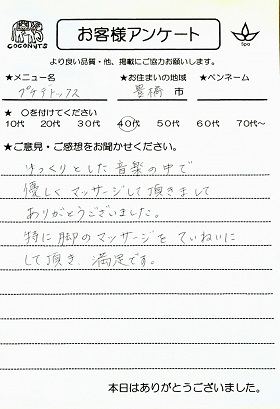 COCONUTS
お客様アンケート
Spa
より良い品質・他、掲載にご協力お願いします。
★メニュー名 ★お住まいの地域 ★ペンネーム
プチデトックス 豊橋 市
★ ○を付けてください
10代 20代 30代 40代 50代 60代 70代～
★ご意見・ご感想をお聞かせください。
ゆっくりとした音楽の中で
優しくマッサージして頂きまして
ありがとうございました。
特に脚のマッサージをていねいに
して頂き、満足です。
本日はありがとうございました。